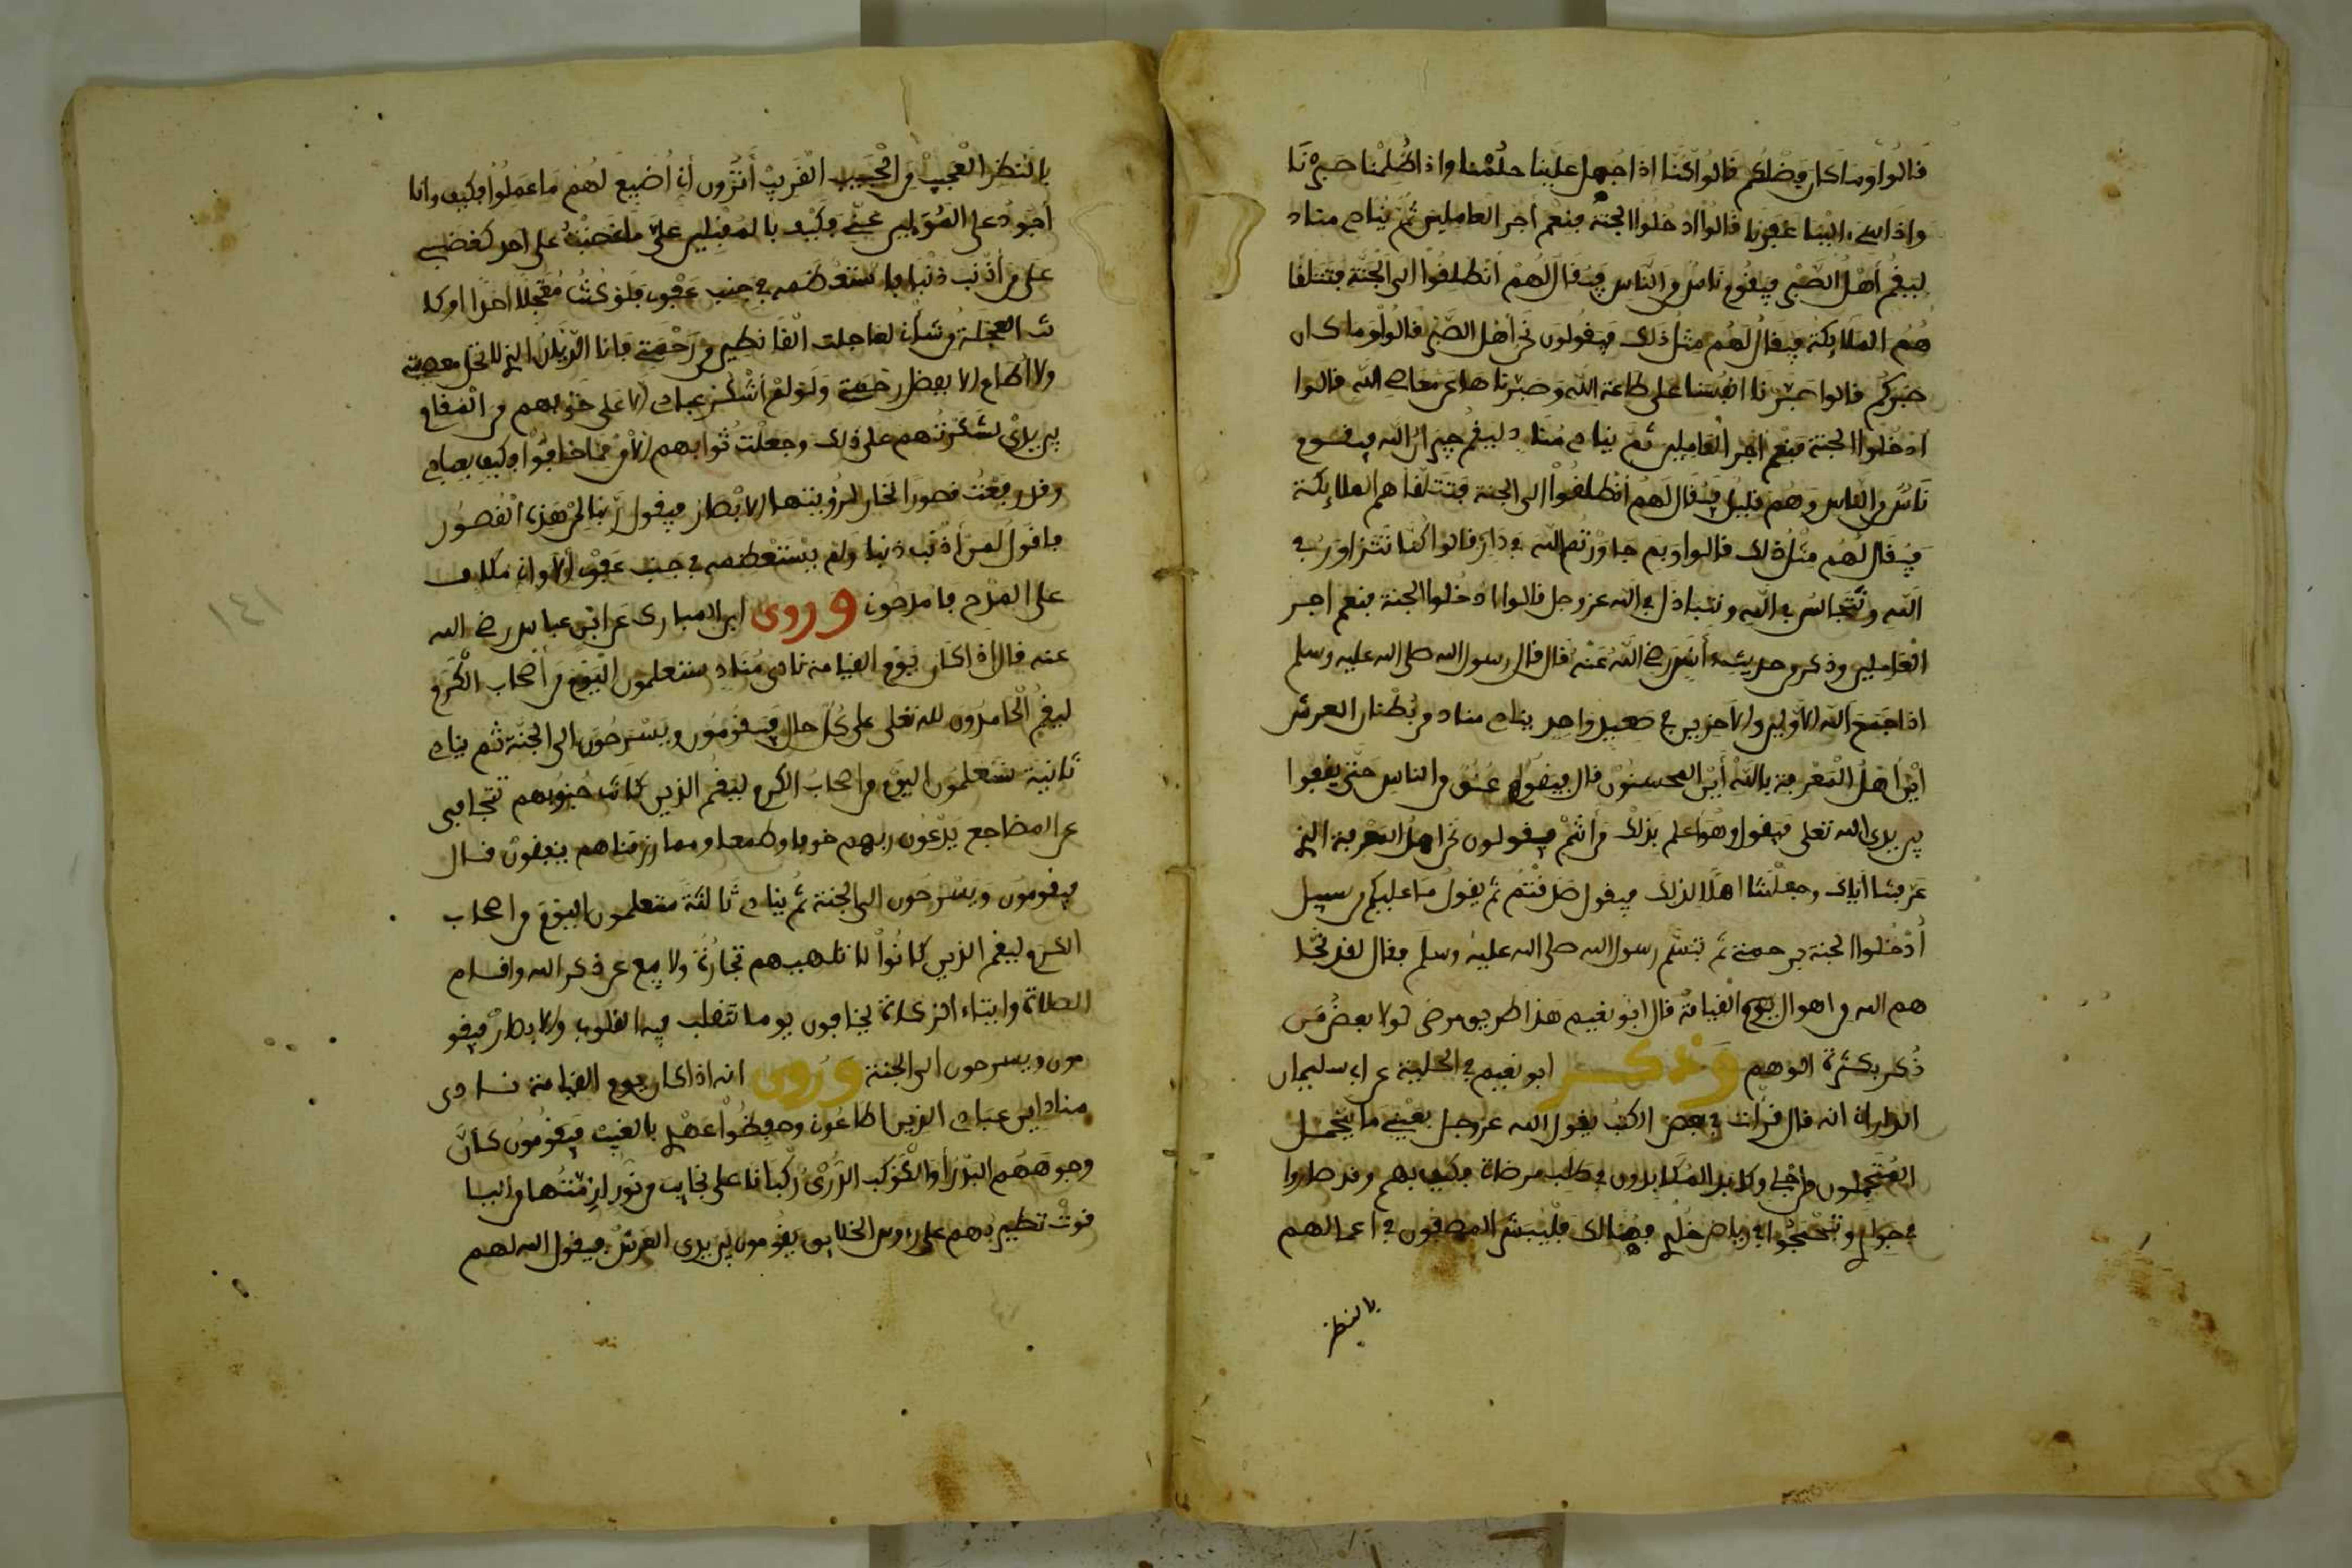 قالوا وما كان فضلكم قالوا كنا اذا جهل علينا حلمنا واذا ظلمنا صبرنا
واذا اسيء الينا غفرنا قالوا ادخلوا الجنة فنعم اجر العاملين ثم ينادي مناد
ليقم أهل الصبر فيقوم ناس من الناس فيقال لهم انطلقوا الى الجنة فتتلقا
هم الملايكة فيقال لهم مثل ذلك فيقولون نحن أهل الصبر قالوا وما كان
صبركم قالوا صبرنا انفسنا على طاعة الله وصبرناها عن معاصي الله قالوا
ادخلوا الجنة فنعم اجر العاملين ثم ينادي مناد ليقم جيران الله فيقوم
ناس من الناس وهم قليل فيقال لهم انطلقوا الى الجنة فتتلقاهم الملايكة
فيقال لهم مثل ذلك قالوا وبم جاورتم الله في داره قالوا كنا نتزاور في
الله ونتجالس في الله ونتباذل في الله عز وجل قالوا ادخلوا الجنة فنعم اجر
العاملين وذكر من حديث أنس رضي الله عنه قال قال رسول الله صلى الله عليه وسلم
اذا جمع الله الاولين والاخرين في صعيد واحد ينادي مناد من بطنان العرش
أين أهل المعرفة بالله أين المحسنون قال فيقوم عنق من الناس حتى يقفوا
بين يدي الله تعلى فيقول وهو أعلم بذلك من أنتم فيقولون نحن أهل المعرفة الذين
عرفتنا اياك وجعلتنا اهلا لذلك فيقول صدقتم ثم يقول ما عليكم من سبيل
أدخلوا الجنة برحمتي ثم تبسم رسول الله صلى الله عليه وسلم فقال لقد نجا
هم الله من اهوال يوم القيامة قال ابو نعيم هذا طريق مرضى لولا بعض من
ذكر بكثرة الوهم وذكر ابو نعيم في الحلية عن ابي سليمان
الداراني انه قال قرأت في بعض الكتب يقول الله عز وجل بعيني ما يتحمل
المتحملون من اجلي وكابد المكابدون في طلب مرضاتي فكيف بهم وقد صاروا
في جواري وتبحبحوا في رياض خلدي فهنالك فليبشر المصفون في اعمالهم
بالنظر
بالنظر العجيب من الحبيب القريب أترون أن أضيع لهم ما عملوا فكيف وانا
أجود على المولين عني فكيف بالمقبلين علي ما غضبت على احد كغضبي
على من أذنب ذنبا فاستعظمه في جنب عفوي فلو كنت معجلا احدا او كا
نت العجلة من شأني لعاجلت القانطين من رحمتي فانا الديان الذي لا تحل معصيته
ولا أطاع الا بفضل رحمتي ولو لم أشكر عبادي الا على خوفهم من المقام
بين يدي لشكرتهم على ذلك وجعلت ثوابهم الأمن مما خافوا فكيف بعبادي
وقد رفعت قصورا تحار لرؤيتها الابصار فيقول ربنا لمن هذه القصور
فاقول لمن أذنب ذنبا ولم يستعظمه في جنب عفوي ألا واني مكاف
على المدح فامدحون وروى ابن المبارك عن ابن عباس رضي الله
عنه قال اذا كان يوم القيامة نادى مناد ستعلمون اليوم من أصحاب الكرم
ليقم الحامدون لله تعلى على كل حال فيقومون ويسرحون الى الجنة ثم ينادي
ثانية ستعلمون اليوم من اصحاب الكرم ليقم الذين كانت جنوبهم تتجافى
عن المضاجع يدعون ربهم خوفا وطمعا ومما رزقناهم ينفقون قال
فيقومون ويسرحون الى الجنة ثم ينادي ثالثة ستعلمون اليوم من اصحاب
الكرم ليقم الذين كانوا لا تلهيهم تجارة ولا بيع عن ذكر الله واقام
الصلاة وايتاء الزكاة يخافون يوما تتقلب فيه القلوب والابصار فيقو
مون ويسرحون الى الجنة وروي انه اذا كان يوم القيامة نادى
مناد اين عبادي الذين اطاعوني وحفظوا عهدي بالغيب فيقومون كأن
وجوههم البدر أو الكوكب الدري ركبانا على نجايب من نور لزمتها من اليا
قوت تطير بهم على رءوس الخلايق يقومون بين يدي العرش فيقول الله لهم
١٤١